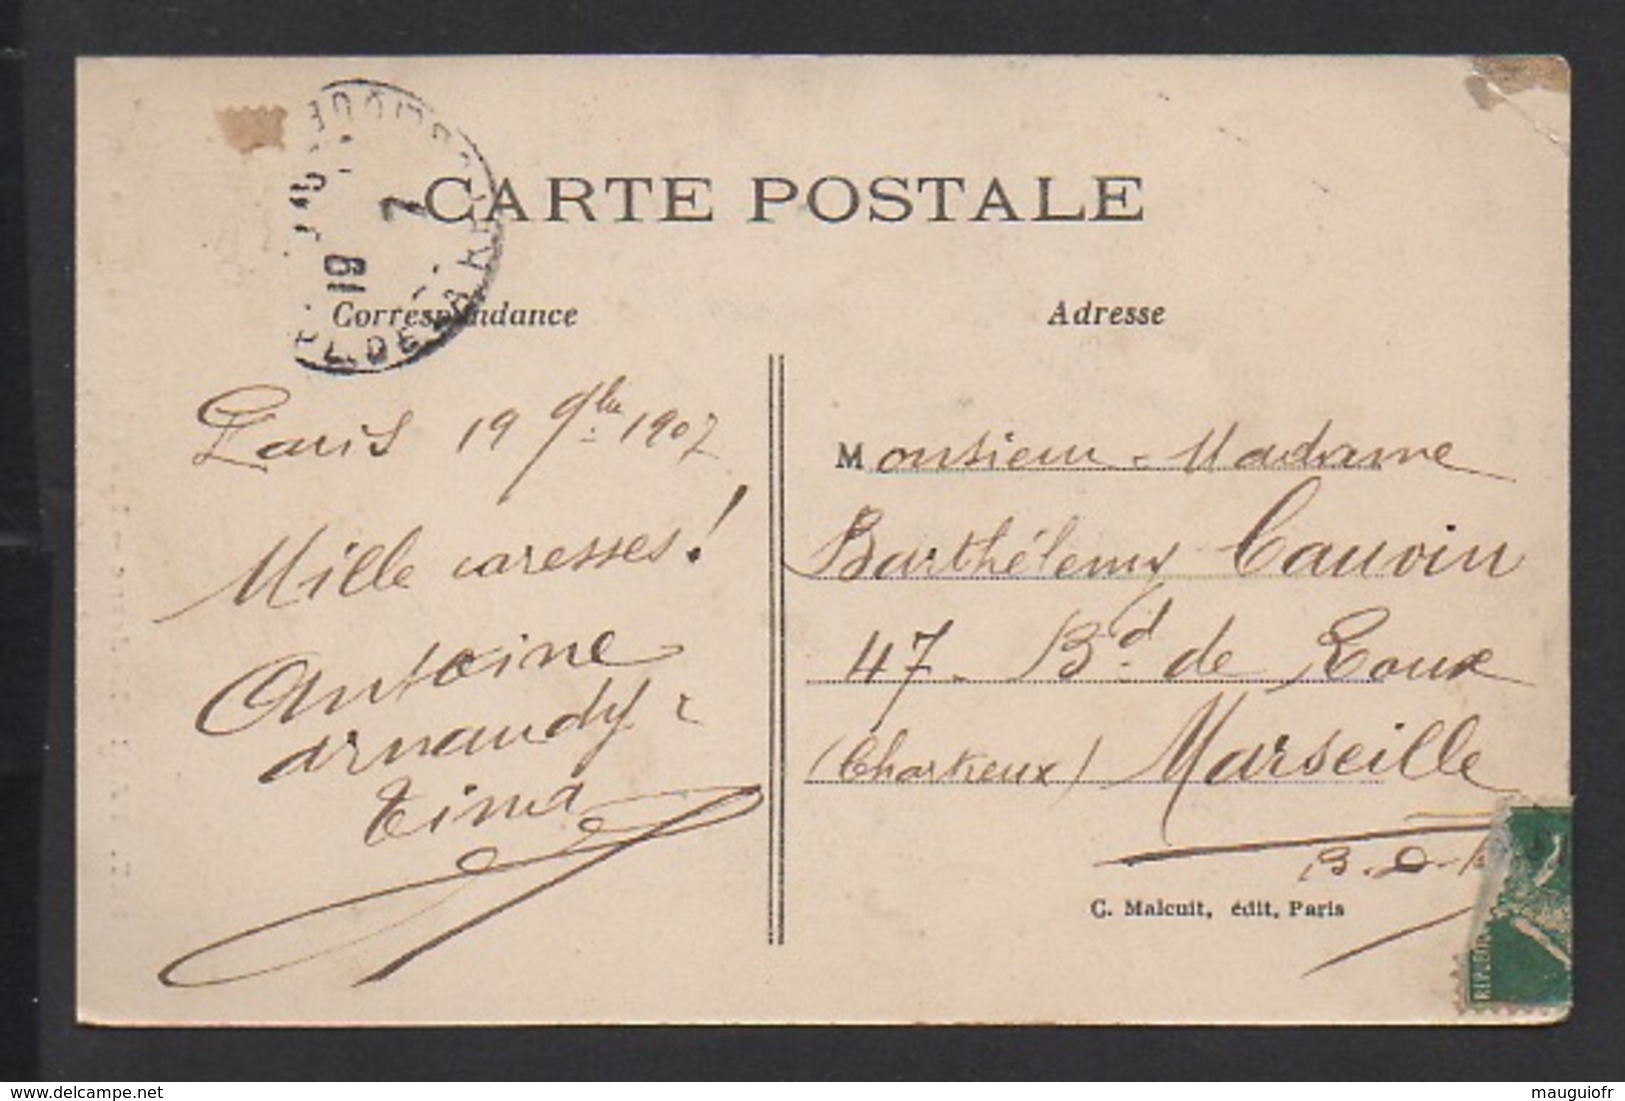 CARTE POSTALE
Correspondance
Adresse
Paris 19 9bre 1907
Mille caresses!
Antoine
Armandy
Tima
Monsieur - Madame
Barthélemy Cauvin
47 - Bd. de Roux
(Chartreux) Marseille
B-d-R
C. Malcuit, édit, Paris
19
7
mauguiofr